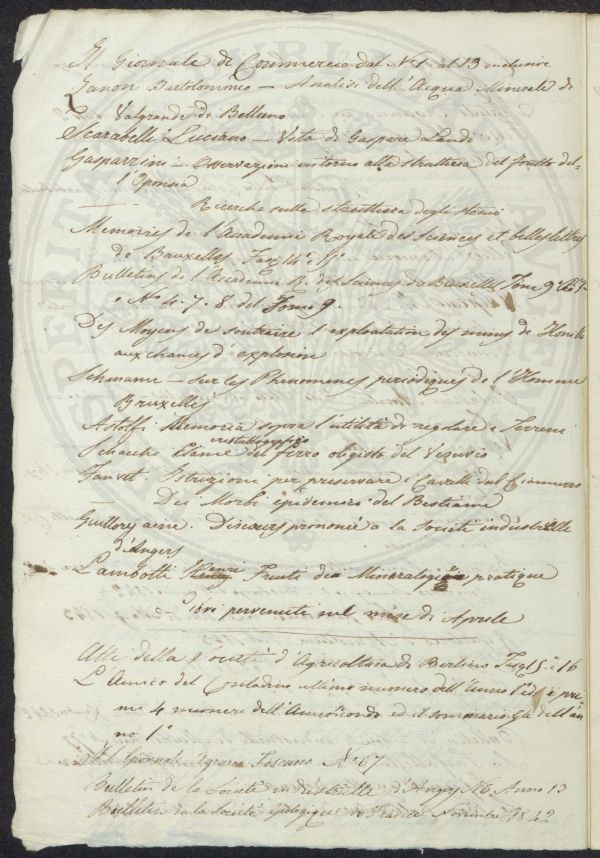 Il Giornale di Commercio dal N. 1 al 13 inclusive
Zanon Bartolommeo – Analisi dell'Acqua Minerale di
Valgrande di Belluno
Scarabelli Luciano – Vita di Gaspare Landi
Gasparrini – Osservazioni intorno alla struttura del frutto del-
l'Opunzia
— Ricerche sulla struttura degli stomi
Memories de l'Academie Royale des Sciences et belles lettres
de Bruxelles
Bulletins de l'Academie R. des Sciences de Bruxelles Tome 9
e No 4. 7. 8 del Tomo 9.
Des Moyens de soutraire l'exploitation des mines de Houille
aux chances d'explosion
Schwann – sur les Phenomenes periodiques de l'Homme
Bruxelles
Astolfi Memoria sopra l'utilità di regolare i Terreni
cristallografico
Esame del ferro oligisto del Vesuvio
Istruzioni per preservare i Cavalli dal Ciamorro
— Dei Morbi epidemici del Bestiame
Guillory ainé. Discours prononcé a la Société industrielle
d'Angers
Lambotti Henri Traité de Mineralogie pratique
Libri pervenuti nel mese di Aprile
Atti della Società d'Agricoltura di Berlino 15 e 16
L'Amico del Contadino ultimo numero dell'Anno 1º ed i pri-
mi 4 numeri dell'Anno secondo ed il sommario dell'an-
no 1º
Il Giornale Agrario Toscano No 67
Bulletin de la Société industrielle d'Angers N6 Anno 13
Bulletin de la Société geologique de France Novembre 1842